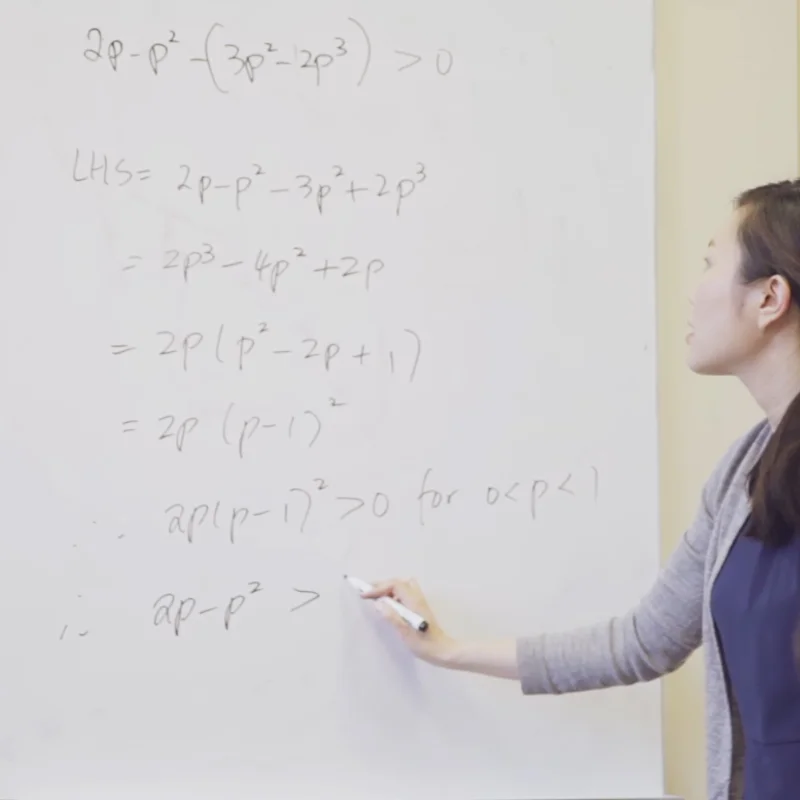 2p-p²-(3p²-2p³) > 0
LHS= 2p-p²-3p²+2p³
= 2p³-4p²+2p
= 2p(p²-2p+1)
= 2p(p-1)²
∴ 2p(p-1)²>0 for 0<p<1
∴ 2p-p² >